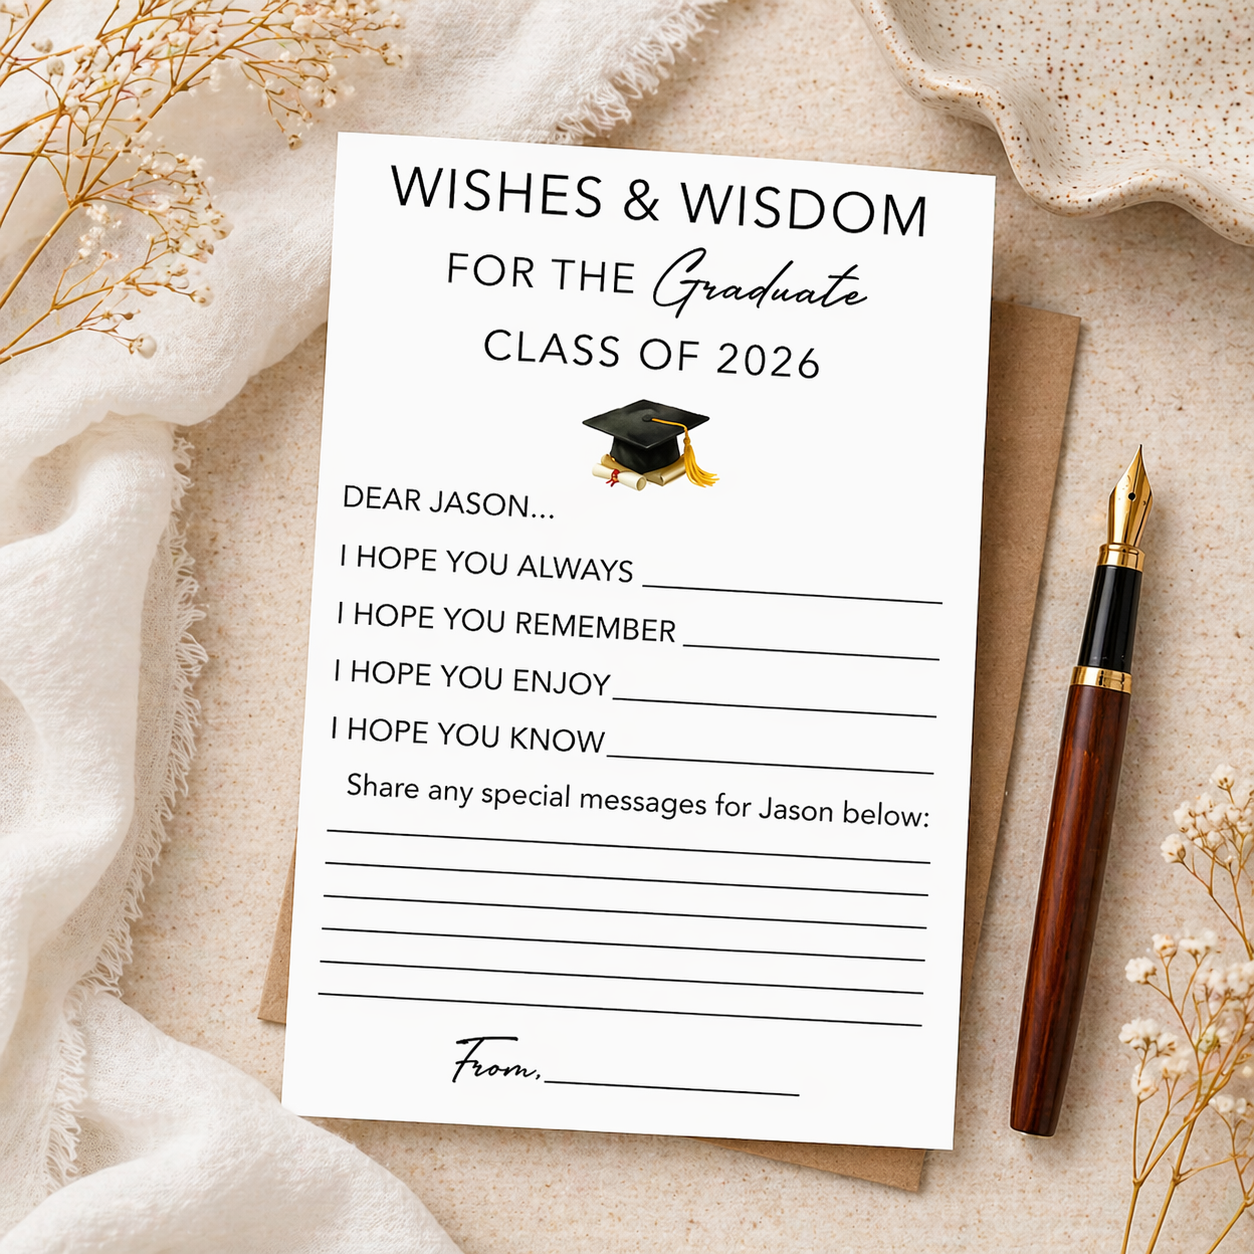 WISHES & WISDOM
FOR THE Graduate
CLASS OF 2026
DEAR JASON...
I HOPE YOU ALWAYS
I HOPE YOU REMEMBER
I HOPE YOU ENJOY
I HOPE YOU KNOW
Share any special messages for Jason below:
From,